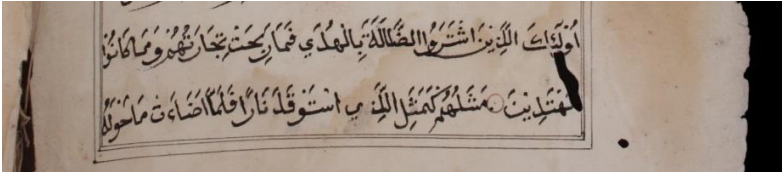 اُوْلَئِكَ الَّذِيْنَ اشْتَرَوُا الضَّلَالَةَ بِالْهُدَي فَمَا رَبِحَتْ تِجَارَتُهُمْ وَمَا كَانُوْا
مُهْتَدِيْنَ مَثَلُهُمْ كَمَثَلِ الَّذِي اسْتَوْقَدَ نَارًا فَلَمَّا اَضَاءَتْ مَا حَوْلَهُ